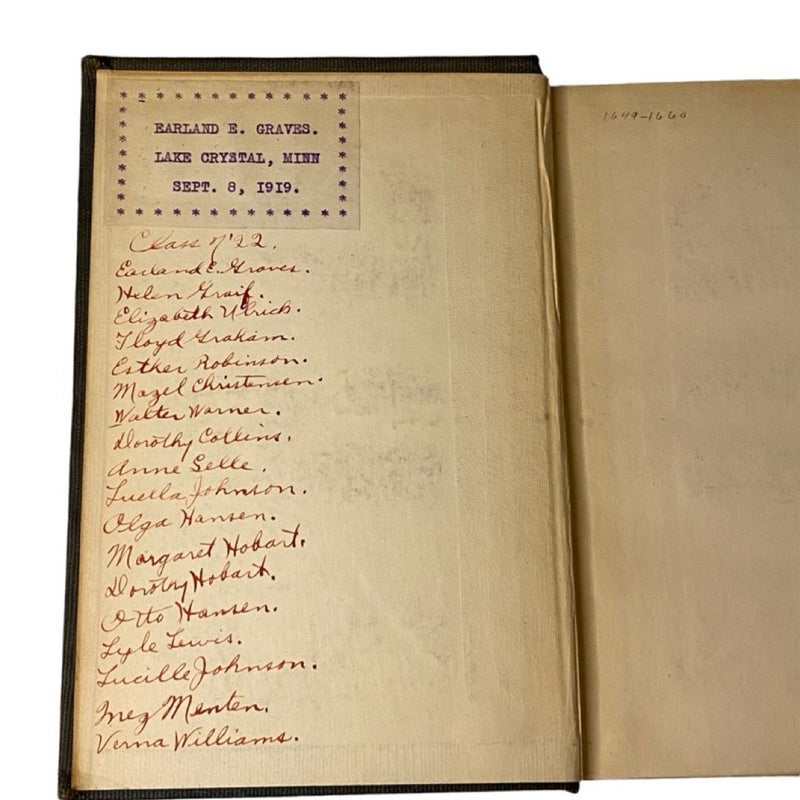 * * * * * * * * * * * * * * * *
EARLAND E. GRAVES.
LAKE CRYSTAL, MINN
SEPT. 8, 1919.
* * * * * * * * * * * * * * *
Class of '22.
Earland E. Graves.
Helen Graif.
Elizabeth Ulrich.
Floyd Graham.
Esther Robinson.
Mazel Christensen.
Walter Warner.
Dorothy Collins.
Anne Selle.
Luella Johnson.
Olga Hansen.
Margaret Hobart.
Dorothy Hobart.
Otto Hansen.
Lyle Lewis.
Lucille Johnson.
Inez Menten.
Verna Williams.
1649-1660